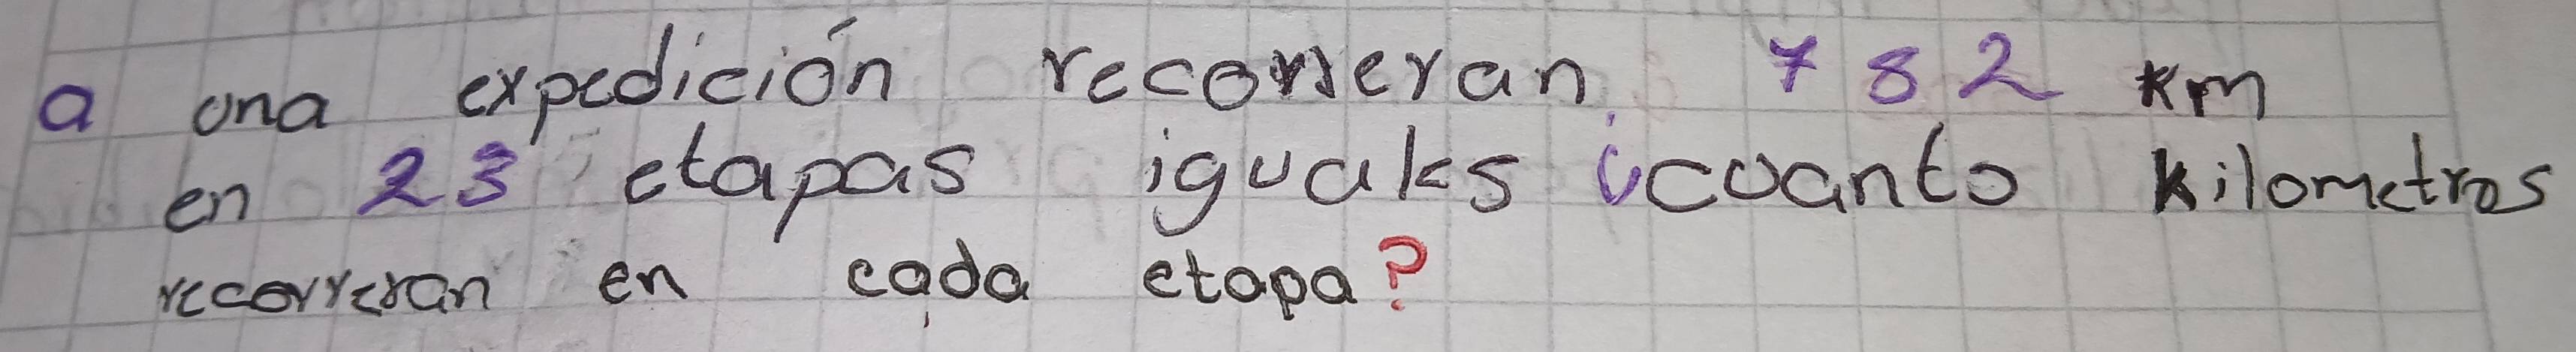 a una expedición recorreran 782 km
en 23 etapas iguales ¿cuanto kilometros
recorreran en cada etapa?